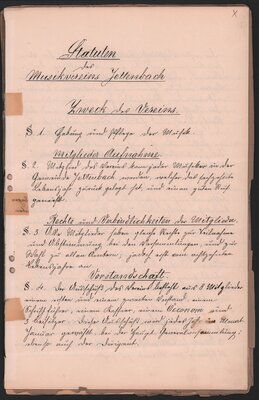 Statuten
des
Musikvereins Jettenbach
Zweck des Vereins.
§ 1. Hebung und Pflege der Musik.
Mitglieder Aufnahme
§ 2. Mitglied des Vereins kann jeder Musiker in der
Gemeinde Jettenbach werden, welcher das sechzehnte
Lebensjahr zurück gelegt hat, und einen guten Ruf
genießt.
Rechte und Verbindlichkeiten der Mitglieder
§ 3. Alle Mitglieder haben gleiche Rechte zur Teilnahme
und Abstimmung bei den Versammlungen und zur
Wahl zu allen Ämtern, jedoch erst vom achtzehnten
Lebensjahre an.
Vorstandschaft.
§ 4. Der Ausschuß des Vereins besteht aus 8 Mitglieder
einem ersten und einem zweiten Vorstand, einem
Schriftführer, einem Kassier, einem Oeconom und
3 Beisitzer. Dieser Ausschuß wird jedes Jahr im Monat
Januar gewählt bei der Haupt General-Versammlung;
ebenso auch der Dirigent.